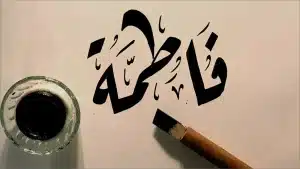 فَاطِمَة